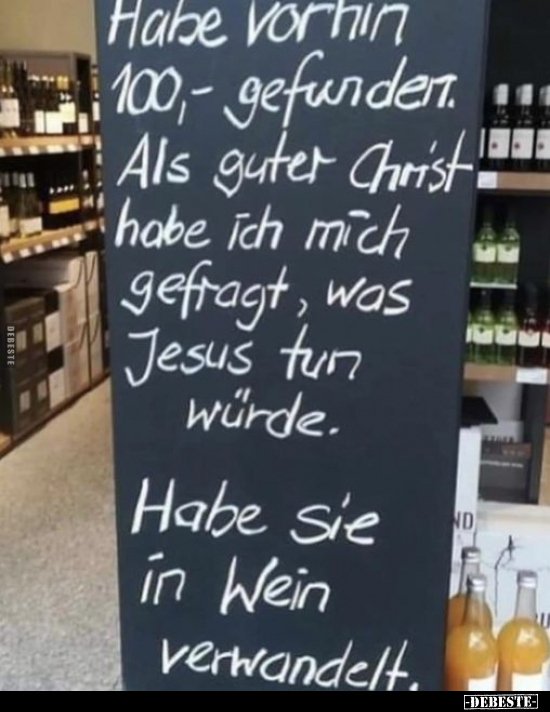 Habe vorhin
100,- gefunden.
Als guter Christ
habe ich mich
gefragt, was
Jesus tun
würde.
Habe sie
in Wein
verwandelt.
DEBESTE
-DEBESTE-